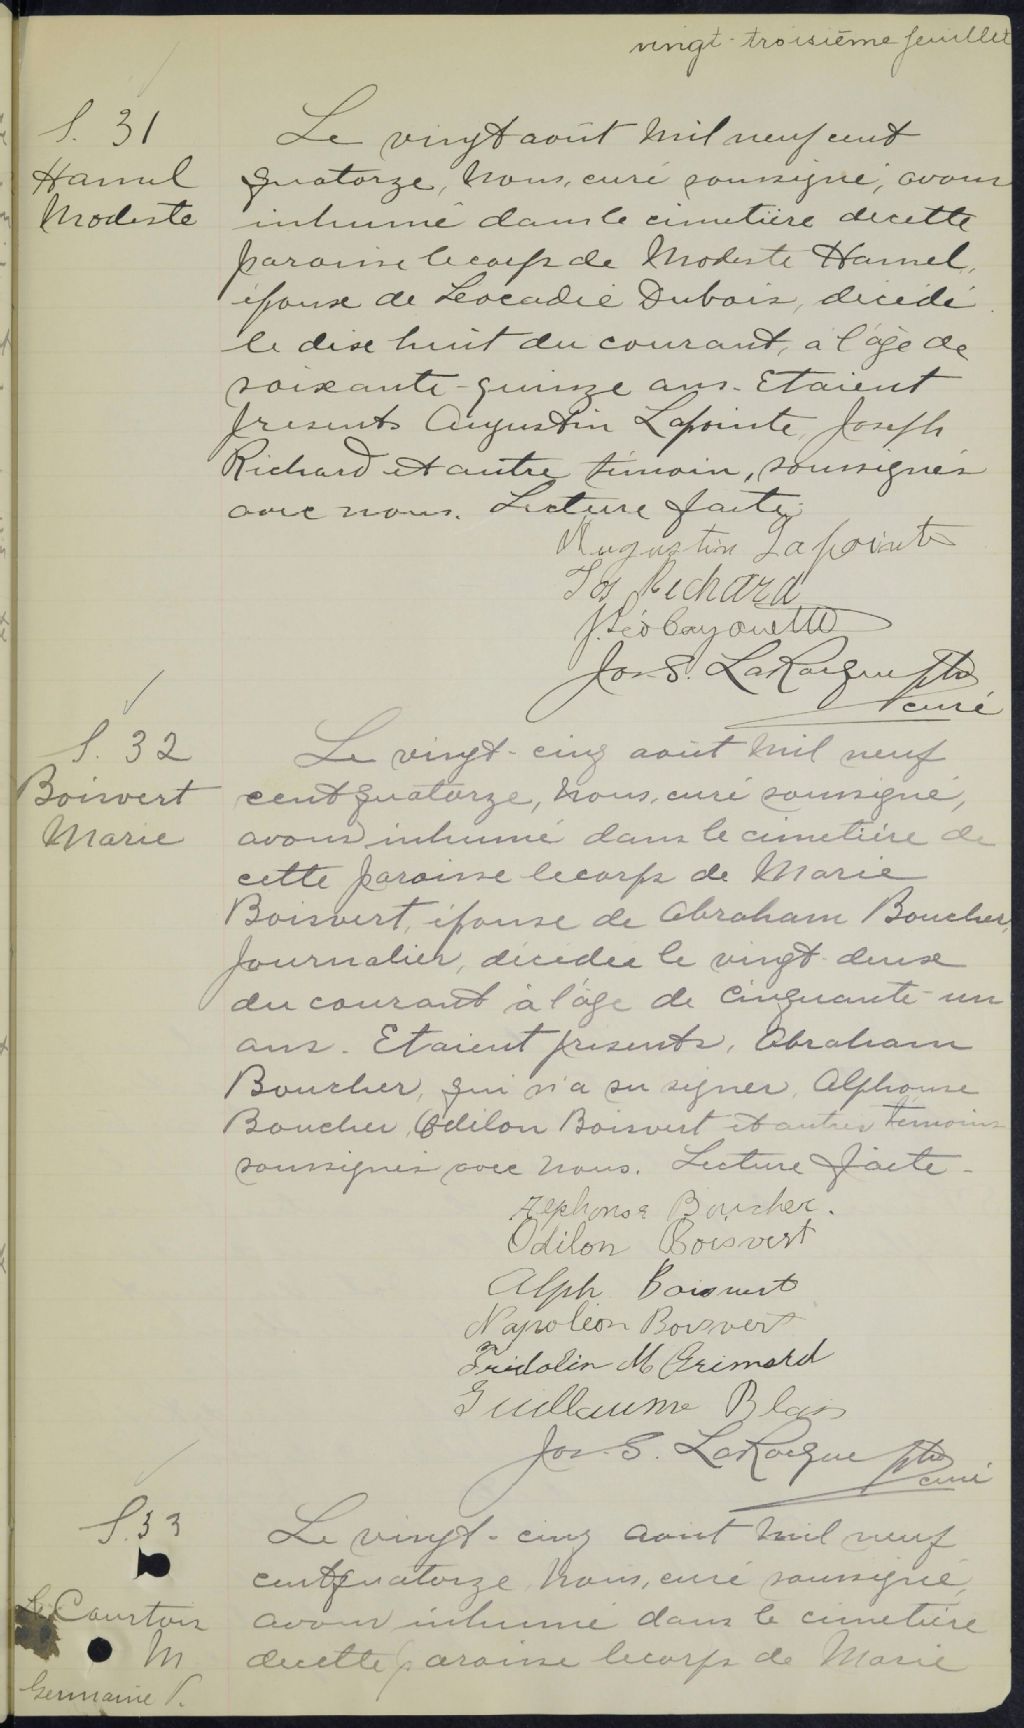 vingt-troisième feuillet
S. 31
Hamel
Modeste
Le vingt août mil neuf cent
quatorze, nous, curé soussigné, avons
inhumé dans le cimetière de cette
paroisse le corps de Modeste Hamel,
époux de Léocadie Dubois, décédé
le dix huit du courant, à l'âge de
soixante-quinze ans. Etaient
présents Augustin Lapointe, Joseph
Richard et autre témoin, soussignés
avec nous. Lecture faite.
Augustin Lapointe
Jos Richard
J. Léo Cayouette
Jos. S. LaRocque Ptre
curé
S. 32
Boisvert
Marie
Le vingt-cinq août mil neuf
cent quatorze, nous, curé soussigné,
avons inhumé dans le cimetière de
cette paroisse le corps de Marie
Boisvert, épouse de Abraham Boucher,
Journalier, décédée le vingt-deux
du courant à l'âge de cinquante-un
ans. Etaient présents, Abraham
Boucher, qui n'a su signer, Alphonse
Boucher, Odilon Boisvert et autres témoins
soussignés avec nous. Lecture faite.
Alphonse Boucher.
Odilon Boisvert
Alph Boisvert
Napoléon Boisvert
Fridolin M Grimard
Guillaume Blais
Jos. S. LaRocque Ptre
curé
S. 33
Courtois
M
Germaine P.
Le vingt-cinq août mil neuf
cent quatorze, nous, curé soussigné,
avons inhumé dans le cimetière
de cette paroisse le corps de Marie